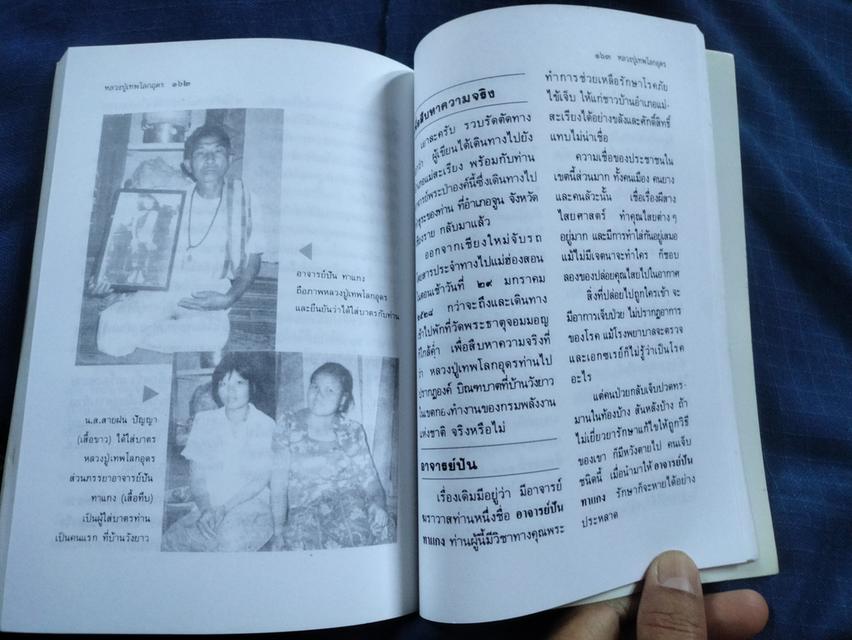 หลวงปู่เทพโลกอุดร ๑๖๒
อาจารย์ปัน ทาแกง
ถือภาพหลวงปู่เทพโลกอุดร
และยืนยันว่าได้ใส่บาตรกับท่าน
น.ส.สายฝน ปัญญา
(เสื้อขาว) ได้ใส่บาตร
หลวงปู่เทพโลกอุดร
ส่วนภรรยาอาจารย์ปัน
ทาแกง (เสื้อทึบ)
เป็นผู้ใส่บาตรท่าน
เป็นคนแรก ที่บ้านวังยาว
๑๖๓ หลวงปู่เทพโลกอุดร
สืบหาความจริง
เอาละครับ รวบรัดตัดทาง
ผู้เขียนได้เดินทางไปยัง
แม่สะเรียง พร้อมกับท่าน
พระป่าองค์นี้ซึ่งเดินทางไป
ธุระของท่าน ที่อำเภอฐน จังหวัด
กลับมาแล้ว
ออกจากเชียงใหม่จับรถ
ประจำทางไปแม่ฮ่องสอน
ตอนเช้าวันที่ ๒๙ มกราคม
กว่าจะถึงและเดินทาง
ไปพักที่วัดพระธาตุจอมมอญ
ก็ใกล้ค่ำ เพื่อสืบหาความจริงที่
ว่า หลวงปู่เทพโลกอุดรท่านไป
ปรากฏองค์ บิณฑบาตที่บ้านวังยาว
ในเขตกองทำงานของกรมพลังงาน
แห่งชาติ จริงหรือไม่
อาจารย์ปัน
เรื่องเดิมมีอยู่ว่า มีอาจารย์
ฆราวาสท่านหนึ่งชื่อ อาจารย์ปัน
ทาแกง ท่านผู้นี้มีวิชาทางคุณพระ
ทำการช่วยเหลือรักษาโรคภัย
ไข้เจ็บ ให้แก่ชาวบ้านอำเภอแม่-
สะเรียงได้อย่างขลังและศักดิ์สิทธิ์
แทบไม่น่าเชื่อ
ความเชื่อของประชาชนใน
เขตนี้ส่วนมาก ทั้งคนเมือง คนยาง
และคนลัวะนั้น เชื่อเรื่องผีสาง
ไสยศาสตร์ ทำคุณไสยต่างๆ
อยู่มาก และมีการทำใส่กันอยู่เสมอ
แม้ไม่มีเจตนาจะทำใคร ก็ชอบ
ลองของปล่อยคุณไสยไปในอากาศ
สิ่งที่ปล่อยไปถูกใครเข้า จะ
มีอาการเจ็บป่วย ไม่ปรากฏอาการ
ของโรค แม้โรงพยาบาลจะตรวจ
และเอกซเรย์ก็ไม่รู้ว่าเป็นโรค
อะไร
แต่คนป่วยกลับเจ็บปวดทร-
มานในท้องบ้าง สันหลังบ้าง ถ้า
ไม่เยียวยารักษาแก้ไขให้ถูกวิธี
ของเขา ก็มีหวังตายไป คนเจ็บ
ชนิดนี้ เมื่อนำมาให้ อาจารย์ปัน
ทาแกง รักษาก็จะหายได้อย่าง
ประหลาด